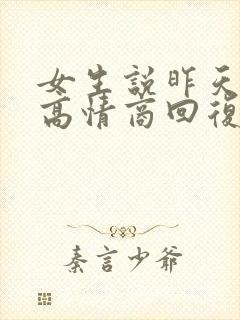 女生說昨天
高情商回復
秦言少爷